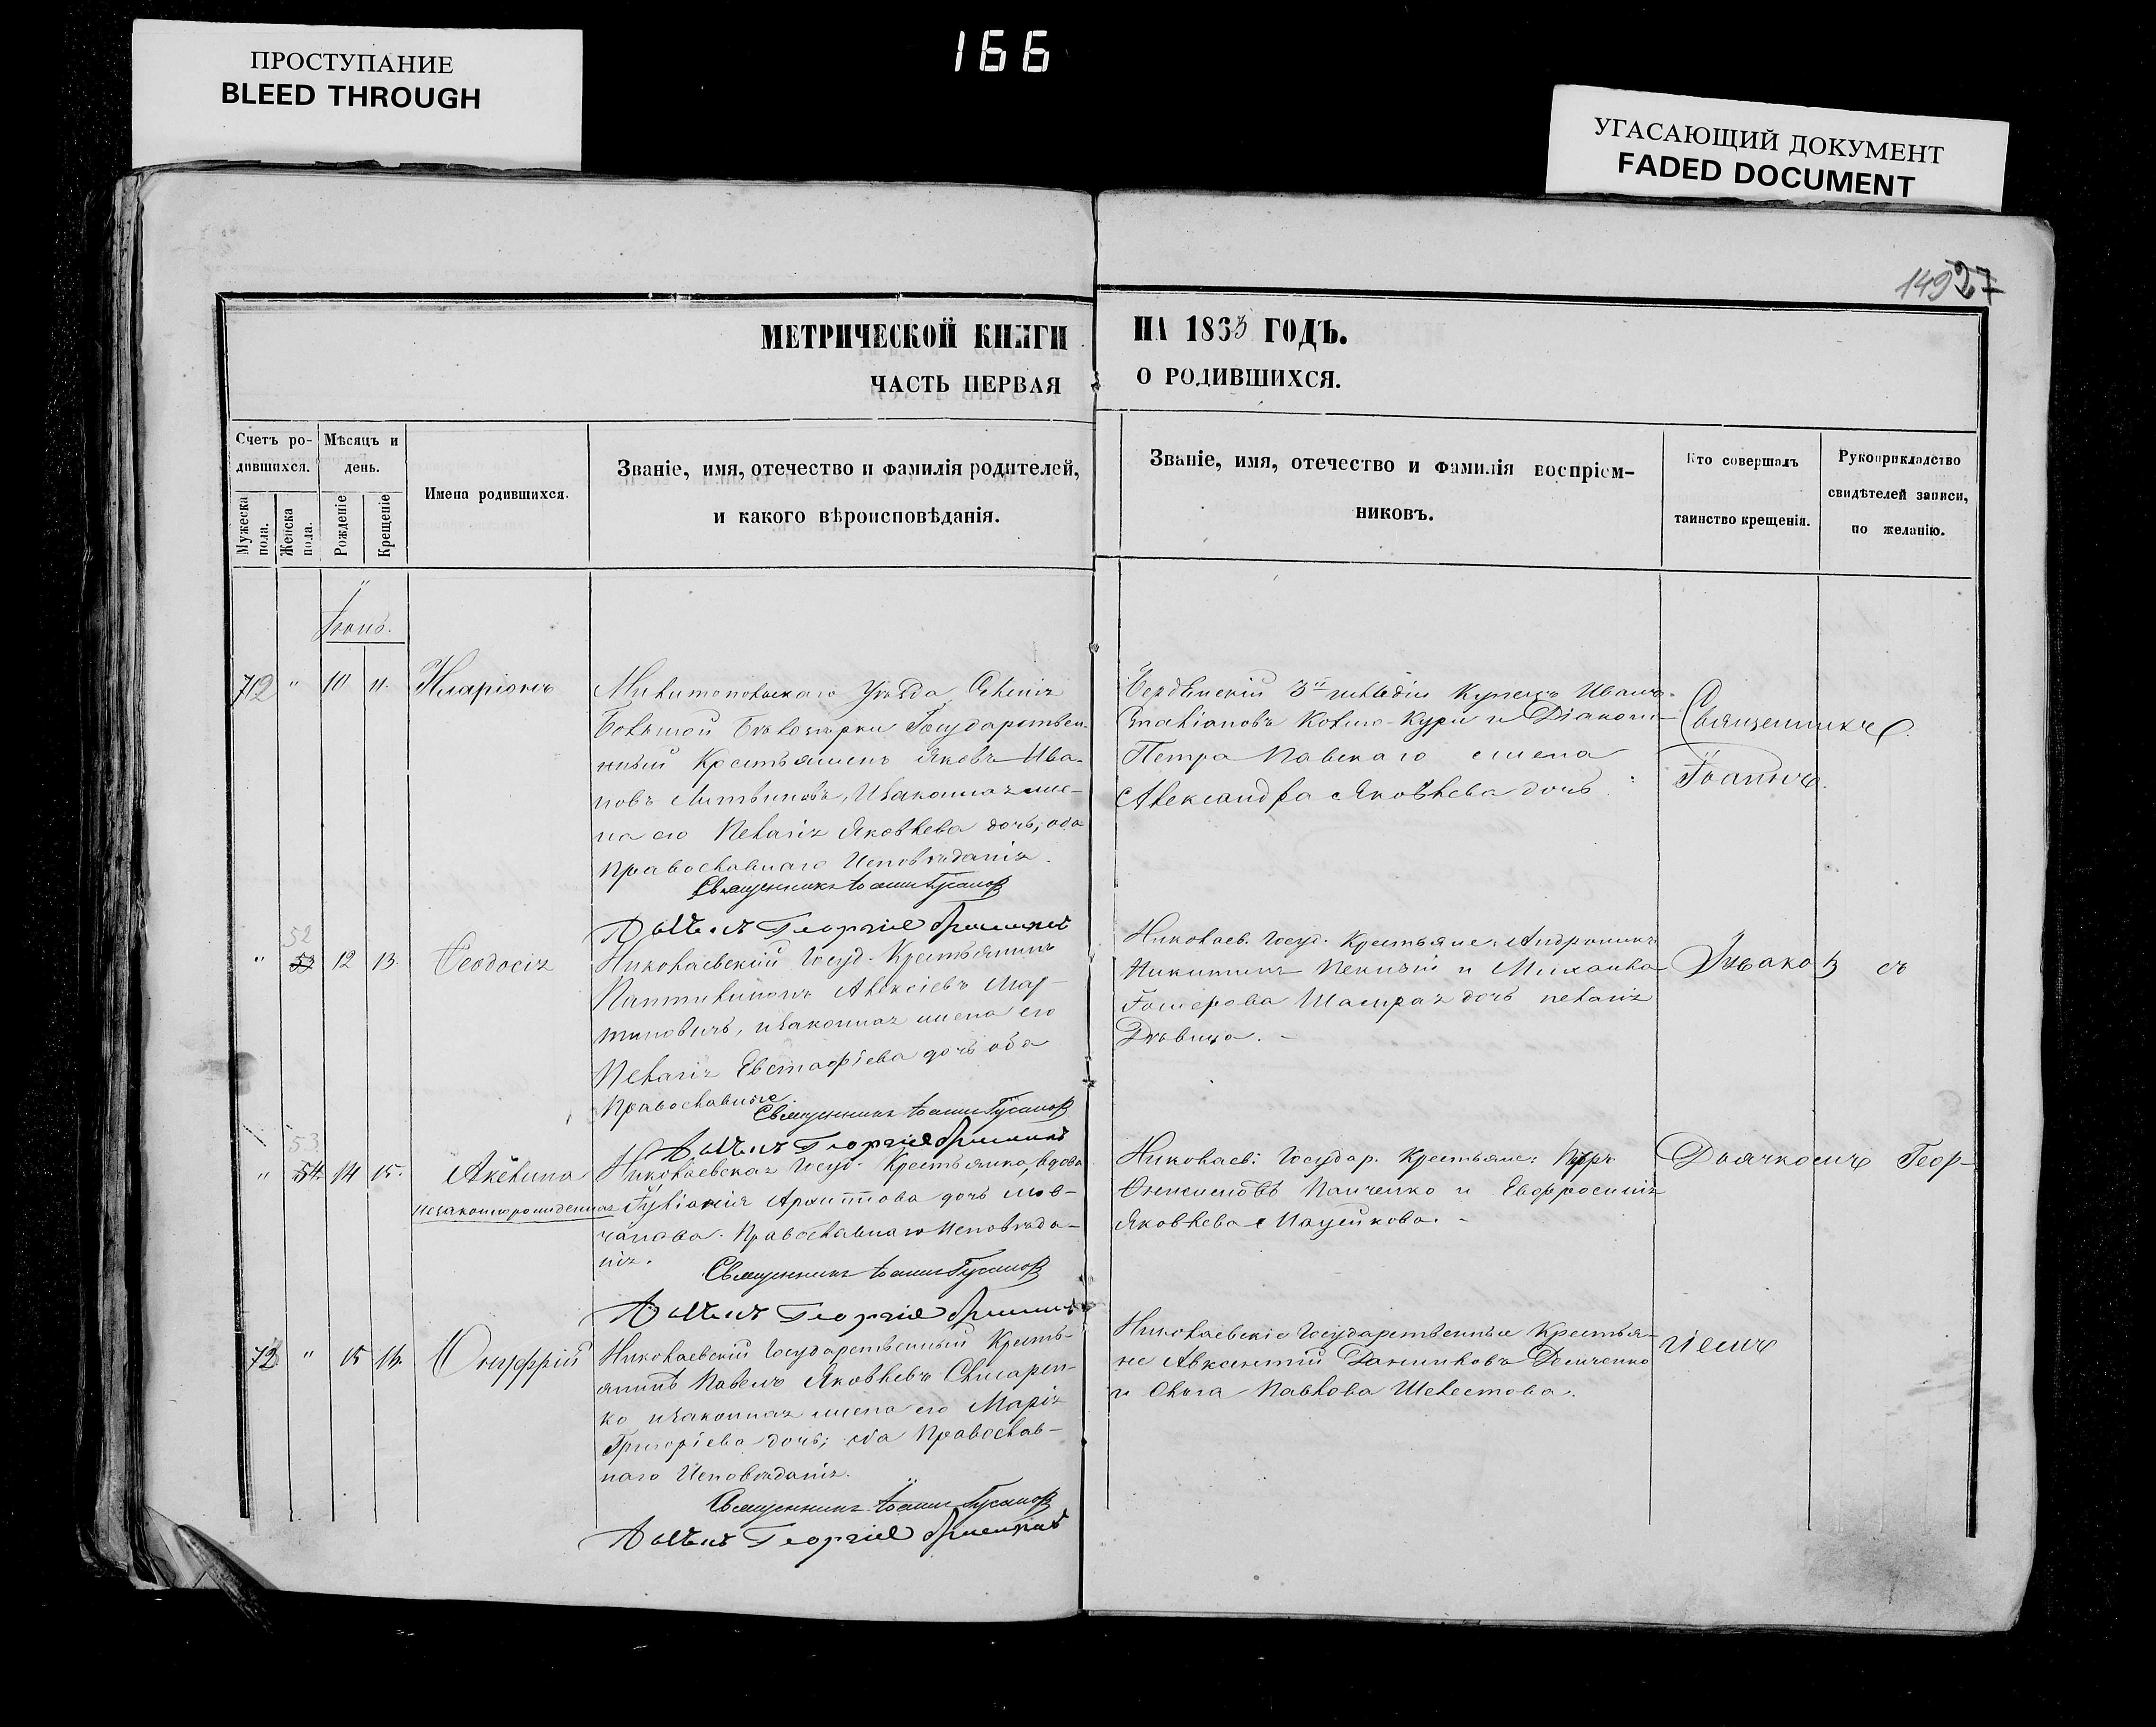 ПРОСТУПАНИЕ
BLEED THROUGH
166
УГАСАЮЩИЙ ДОКУМЕНТ
FADED DOCUMENT
149 27
МЕТРИЧЕСКОЙ КНИГИ НА 1863 ГОДЪ.
ЧАСТЬ ПЕРВАЯ О РОДИВШИХСЯ.
Счетъ ро-
дившихся.
Мужеска
пола.
Женска
пола.
Мѣсяцъ и
день.
Рожденіе
Крещеніе
Имена родившихся.
Званіе, имя, отечество и фамилія родителей,
и какого вѣроисповѣданія.
Званіе, имя, отечество и фамилія воспріем-
никовъ.
Кто совершалъ
таинство крещенія.
Рукоприкладство
свидѣтелей записи,
по желанію.
Іюнь.
712 " 10 11. Иларіонъ
Мелитопольскаго Уѣзда Селенія
Большой Бѣлозерки Государствен-
ный Крестьянинъ Яковъ Ива-
новъ Литвиновъ, и законная же-
на его Пелагія Яковлева дочь; оба
Православнаго Исповѣданія.
Священникъ Іоаннъ Гусаковъ
Дьячекъ Георгій
Бердянскій 3й гильдіи Купецъ Иванъ
Кольцо-Кури и Діакона
Петра Павскаго жена
Александра Яковлева дочь.
Священникъ
Іоаннъ
" 52 53 12 13. Ѳеодосія
Николаевскій Госуд. Крестьянинъ
Пантилимонъ Алексіевъ Мар-
тиновичъ, и законная жена его
Пелагія Евстафіева дочь оба
Православные.
Священникъ Іоаннъ Гусаковъ
Дьячекъ Георгій
Николаев. Госуд. Крестьяне: Андроникъ
Никитинъ и Михаила
дочь Пелагія
Дѣвица.
Гусаковъ съ
" 53 54. 14 15. Акелина
незаконнорожденная
Николаевская Госуд. Крестьянка, вдова
Іуліанія Архиппова дочь Мов-
чанова. Православнаго Исповѣда-
нія.
Священникъ Іоаннъ Гусаковъ
Дьячекъ Георгій
Николаев: Государ. Крестьяне: Петръ
Панченко и Евфросинія
Яковлева
Дьячкомъ Геор-
72 " 15 16. Онуфрій
Николаевскій Государственный Кресть-
янинъ Павелъ Яковлевъ Слюсарен-
ко и законная жена его Марія
Григоріева дочь; оба Православ-
наго Исповѣданія.
Священникъ Іоаннъ Гусаковъ
Дьячекъ Георгій
Николаевскіе Государственные Крестья-
не Авксентій Даниловъ Демченко
и Ольга Павлова Шелестова.
гіемъ